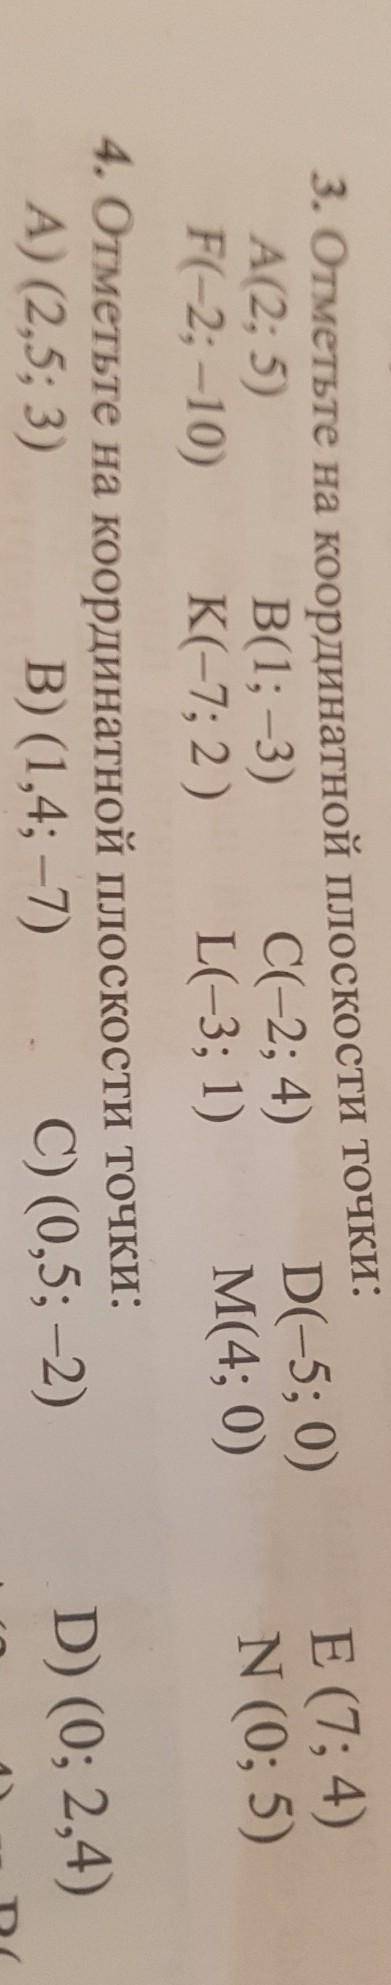 3. Отметьте на координатной плоскости точки:
A(2; 5) B(1; –3) C(–2; 4) D(–5; 0) E (7; 4)
F(–2; –10) K(–7; 2 ) L(–3; 1) M(4; 0) N (0; 5)
4. Отметьте на координатной плоскости точки:
A) (2,5; 3) B) (1,4; –7) C) (0,5; –2) D) (0; 2,4)